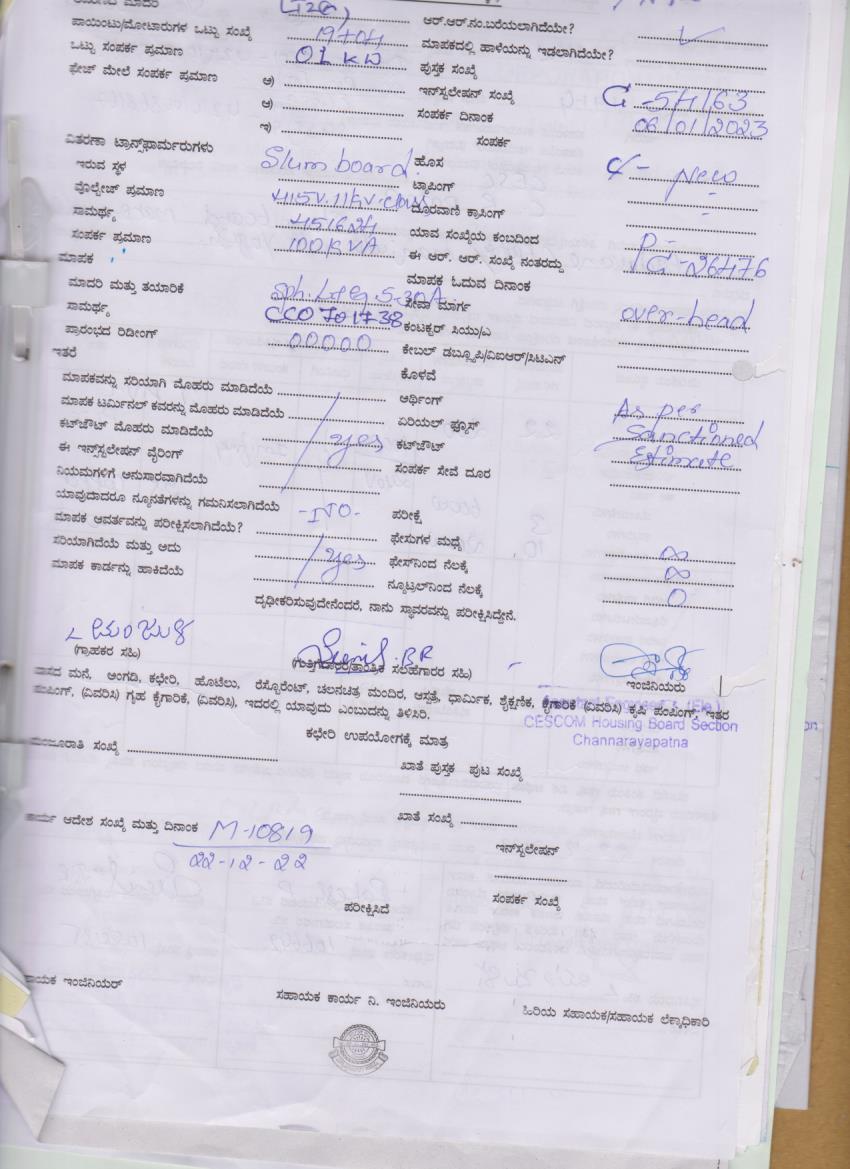 ಪಾಯಿಂಟು/ಮೋಟಾರುಗಳ ಒಟ್ಟು ಸಂಖ್ಯೆ 19+04
ಒಟ್ಟು ಸಂಪರ್ಕ ಪ್ರಮಾಣ 01 KW
ಫೇಜ್ ಮೇಲೆ ಸಂಪರ್ಕ ಪ್ರಮಾಣ ಆ)
ಆ)
ಇ)
ವಿತರಣಾ ಟ್ರಾನ್ಸ್‌ಫಾರ್ಮರುಗಳು
ಇರುವ ಸ್ಥಳ Slum board.
ವೊಲ್ಟೇಜ್ ಪ್ರಮಾಣ 415V.11KV class
ಸಾಮರ್ಥ್ಯ
ಸಂಪರ್ಕ ಪ್ರಮಾಣ 100KVA
ಮಾಪಕ
ಮಾದರಿ ಮತ್ತು ತಯಾರಿಕೆ
ಸಾಮರ್ಥ್ಯ CCO701738
ಪ್ರಾರಂಭದ ರಿಡೀಂಗ್ 00000
ಇತರೆ
ಮಾಪಕವನ್ನು ಸರಿಯಾಗಿ ಮೊಹರು ಮಾಡಿದೆಯೆ
ಮಾಪಕ ಟರ್ಮಿನಲ್ ಕವರನ್ನು ಮೊಹರು ಮಾಡಿದೆಯೆ
ಕಟ್‌ಔಟ್ ಮೊಹರು ಮಾಡಿದೆಯೆ yes
ಈ ಇನ್‌ಸ್ಟಲೇಷನ್ ವೈರಿಂಗ್
ನಿಯಮಗಳಿಗೆ ಅನುಸಾರವಾಗಿದೆಯೆ
ಯಾವುದಾದರೂ ನ್ಯೂನತೆಗಳನ್ನು ಗಮನಿಸಲಾಗಿದೆಯೆ -NO-
ಮಾಪಕ ಆವರ್ತವನ್ನು ಪರೀಕ್ಷಿಸಲಾಗಿದೆಯೆ?
ಸರಿಯಾಗಿದೆಯೆ ಮತ್ತು ಅದು yes
ಮಾಪಕ ಕಾರ್ಡನ್ನು ಹಾಕಿದೆಯೆ
ಆರ್.ಆರ್.ನಂ.ಬರೆಯಲಾಗಿದೆಯೇ?
ಮಾಪಕದಲ್ಲಿ ಹಾಳೆಯನ್ನು ಇಡಲಾಗಿದೆಯೇ?
ಪುಸ್ತಕ ಸಂಖ್ಯೆ
ಇನ್‌ಸ್ಟಲೇಷನ್ ಸಂಖ್ಯೆ G-54163
ಸಂಪರ್ಕ ದಿನಾಂಕ 06/01/2023
ಸಂಪರ್ಕ
ಹೊಸ New
ಟ್ಯಾಪಿಂಗ್ -
ದೂರವಾಣಿ ಕ್ರಾಸಿಂಗ್ -
ಯಾವ ಸಂಖ್ಯೆಯ ಕಂಬದಿಂದ P-
ಈ ಆರ್. ಆರ್. ಸಂಖ್ಯೆ ನಂತರದ್ದು G-26476
ಮಾಪಕ ಓದುವ ದಿನಾಂಕ
ಸೇವಾ ಮಾರ್ಗ over-head
ಕಂಟಕ್ಟರ್ ಸಿಯು/ಎ
ಕೇಬಲ್ ಡಬ್ಲ್ಯೂಪಿ/ವಿಐಆರ್/ಸಿಟಿಎನ್
ಕೊಳವೆ
ಆರ್ಥಿಂಗ್ As per
ಏರಿಯಲ್ ಫ್ಯೂಸ್ Sanctioned
ಕಟ್‌ಔಟ್ Estimate
ಸಂಪರ್ಕ ಸೇವೆ ದೂರ
ಪರೀಕ್ಷೆ
ಫೇಸುಗಳ ಮಧ್ಯೆ ∞
ಫೇಸ್‌ನಿಂದ ನೆಲಕ್ಕೆ ∞
ನ್ಯೂಟ್ರಲ್‌ನಿಂದ ನೆಲಕ್ಕೆ 0
ದೃಢೀಕರಿಸುವುದೇನೆಂದರೆ, ನಾನು ಸ್ಥಾವರವನ್ನು ಪರೀಕ್ಷಿಸಿದ್ದೇನೆ.
ಮಂಜುಳ
(ಗ್ರಾಹಕರ ಸಹಿ)
(ಗುತ್ತಿಗೆದಾರರ/ತಾಂತ್ರಿಕ ಸಲಹೆಗಾರರ ಸಹಿ)
ಇಂಜಿನಿಯರು
ವಾಸದ ಮನೆ, ಅಂಗಡಿ, ಕಛೇರಿ, ಹೊಟೆಲು, ರೆಸ್ಟೊರೆಂಟ್, ಚಲನಚಿತ್ರ ಮಂದಿರ, ಆಸ್ಪತ್ರೆ, ಧಾರ್ಮಿಕ, ಶೈಕ್ಷಣಿಕ, ಕೈಗಾರಿಕೆ (ವಿವರಿಸಿ) ಕೃಷಿ ಪಂಪಿಂಗ್, ಇತರ
ಪಂಪಿಂಗ್, (ವಿವರಿಸಿ) ಗೃಹ ಕೈಗಾರಿಕೆ, (ವಿವರಿಸಿ), ಇದರಲ್ಲಿ ಯಾವುದು ಎಂಬುದನ್ನು ತಿಳಿಸಿರಿ.
CESCOM Housing Board Section
Channarayapatna
ಕಛೇರಿ ಉಪಯೋಗಕ್ಕೆ ಮಾತ್ರ
ಮಂಜೂರಾತಿ ಸಂಖ್ಯೆ
ಖಾತೆ ಪುಸ್ತಕ ಪುಟ ಸಂಖ್ಯೆ
ಕಾರ್ಯ ಆದೇಶ ಸಂಖ್ಯೆ ಮತ್ತು ದಿನಾಂಕ M-10819
22-12-22
ಖಾತೆ ಸಂಖ್ಯೆ
ಇನ್‌ಸ್ಟಲೇಷನ್
ಸಂಪರ್ಕ ಸಂಖ್ಯೆ
ಪರೀಕ್ಷಿಸಿದೆ
ಸಹಾಯಕ ಇಂಜಿನಿಯರ್
ಸಹಾಯಕ ಕಾರ್ಯ ನಿ. ಇಂಜಿನಿಯರು
ಹಿರಿಯ ಸಹಾಯಕ/ಸಹಾಯಕ ಲೆಕ್ಕಾಧಿಕಾರಿ